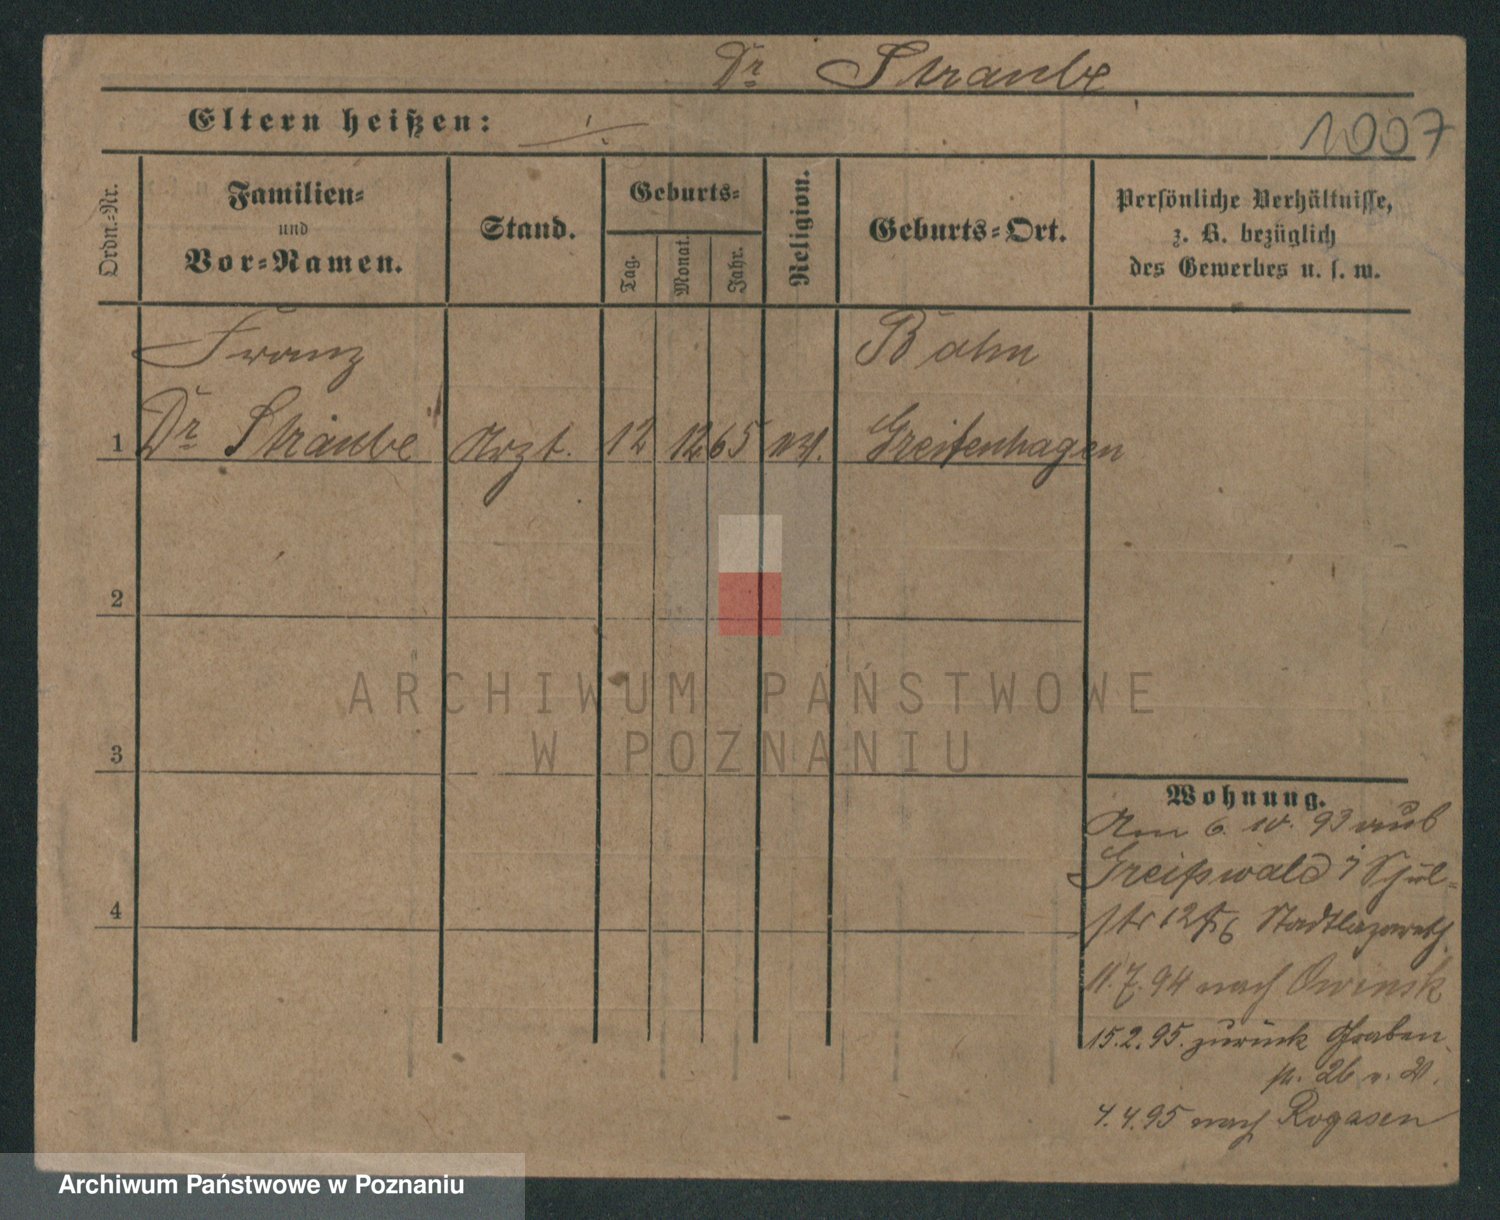 Dr Straube
Eltern heißen: ·/·
1007
Ordn.-Nr.
Familien-
und
Vor-Namen.
Stand.
Geburts-
Tag.
Monat.
Jahr.
Religion.
Geburts-Ort.
Persönliche Verhältnisse,
z. B. bezüglich
des Gewerbes u. s. w.
Franz
Bahn
1 Dr Straube Arzt. 12 12 65 Greifenhagen
2
3
4
Wohnung.
Am 6. 10. 93 aus
Greifswald Schul-
str 12 Stadtlazareth
11.7.94 nach Owinsk
15.2.95. zurück Graben
26
4.4.95 nach Rogasen
ARCHIWUM PAŃSTWOWE
W POZNANIU
Archiwum Państwowe w Poznaniu